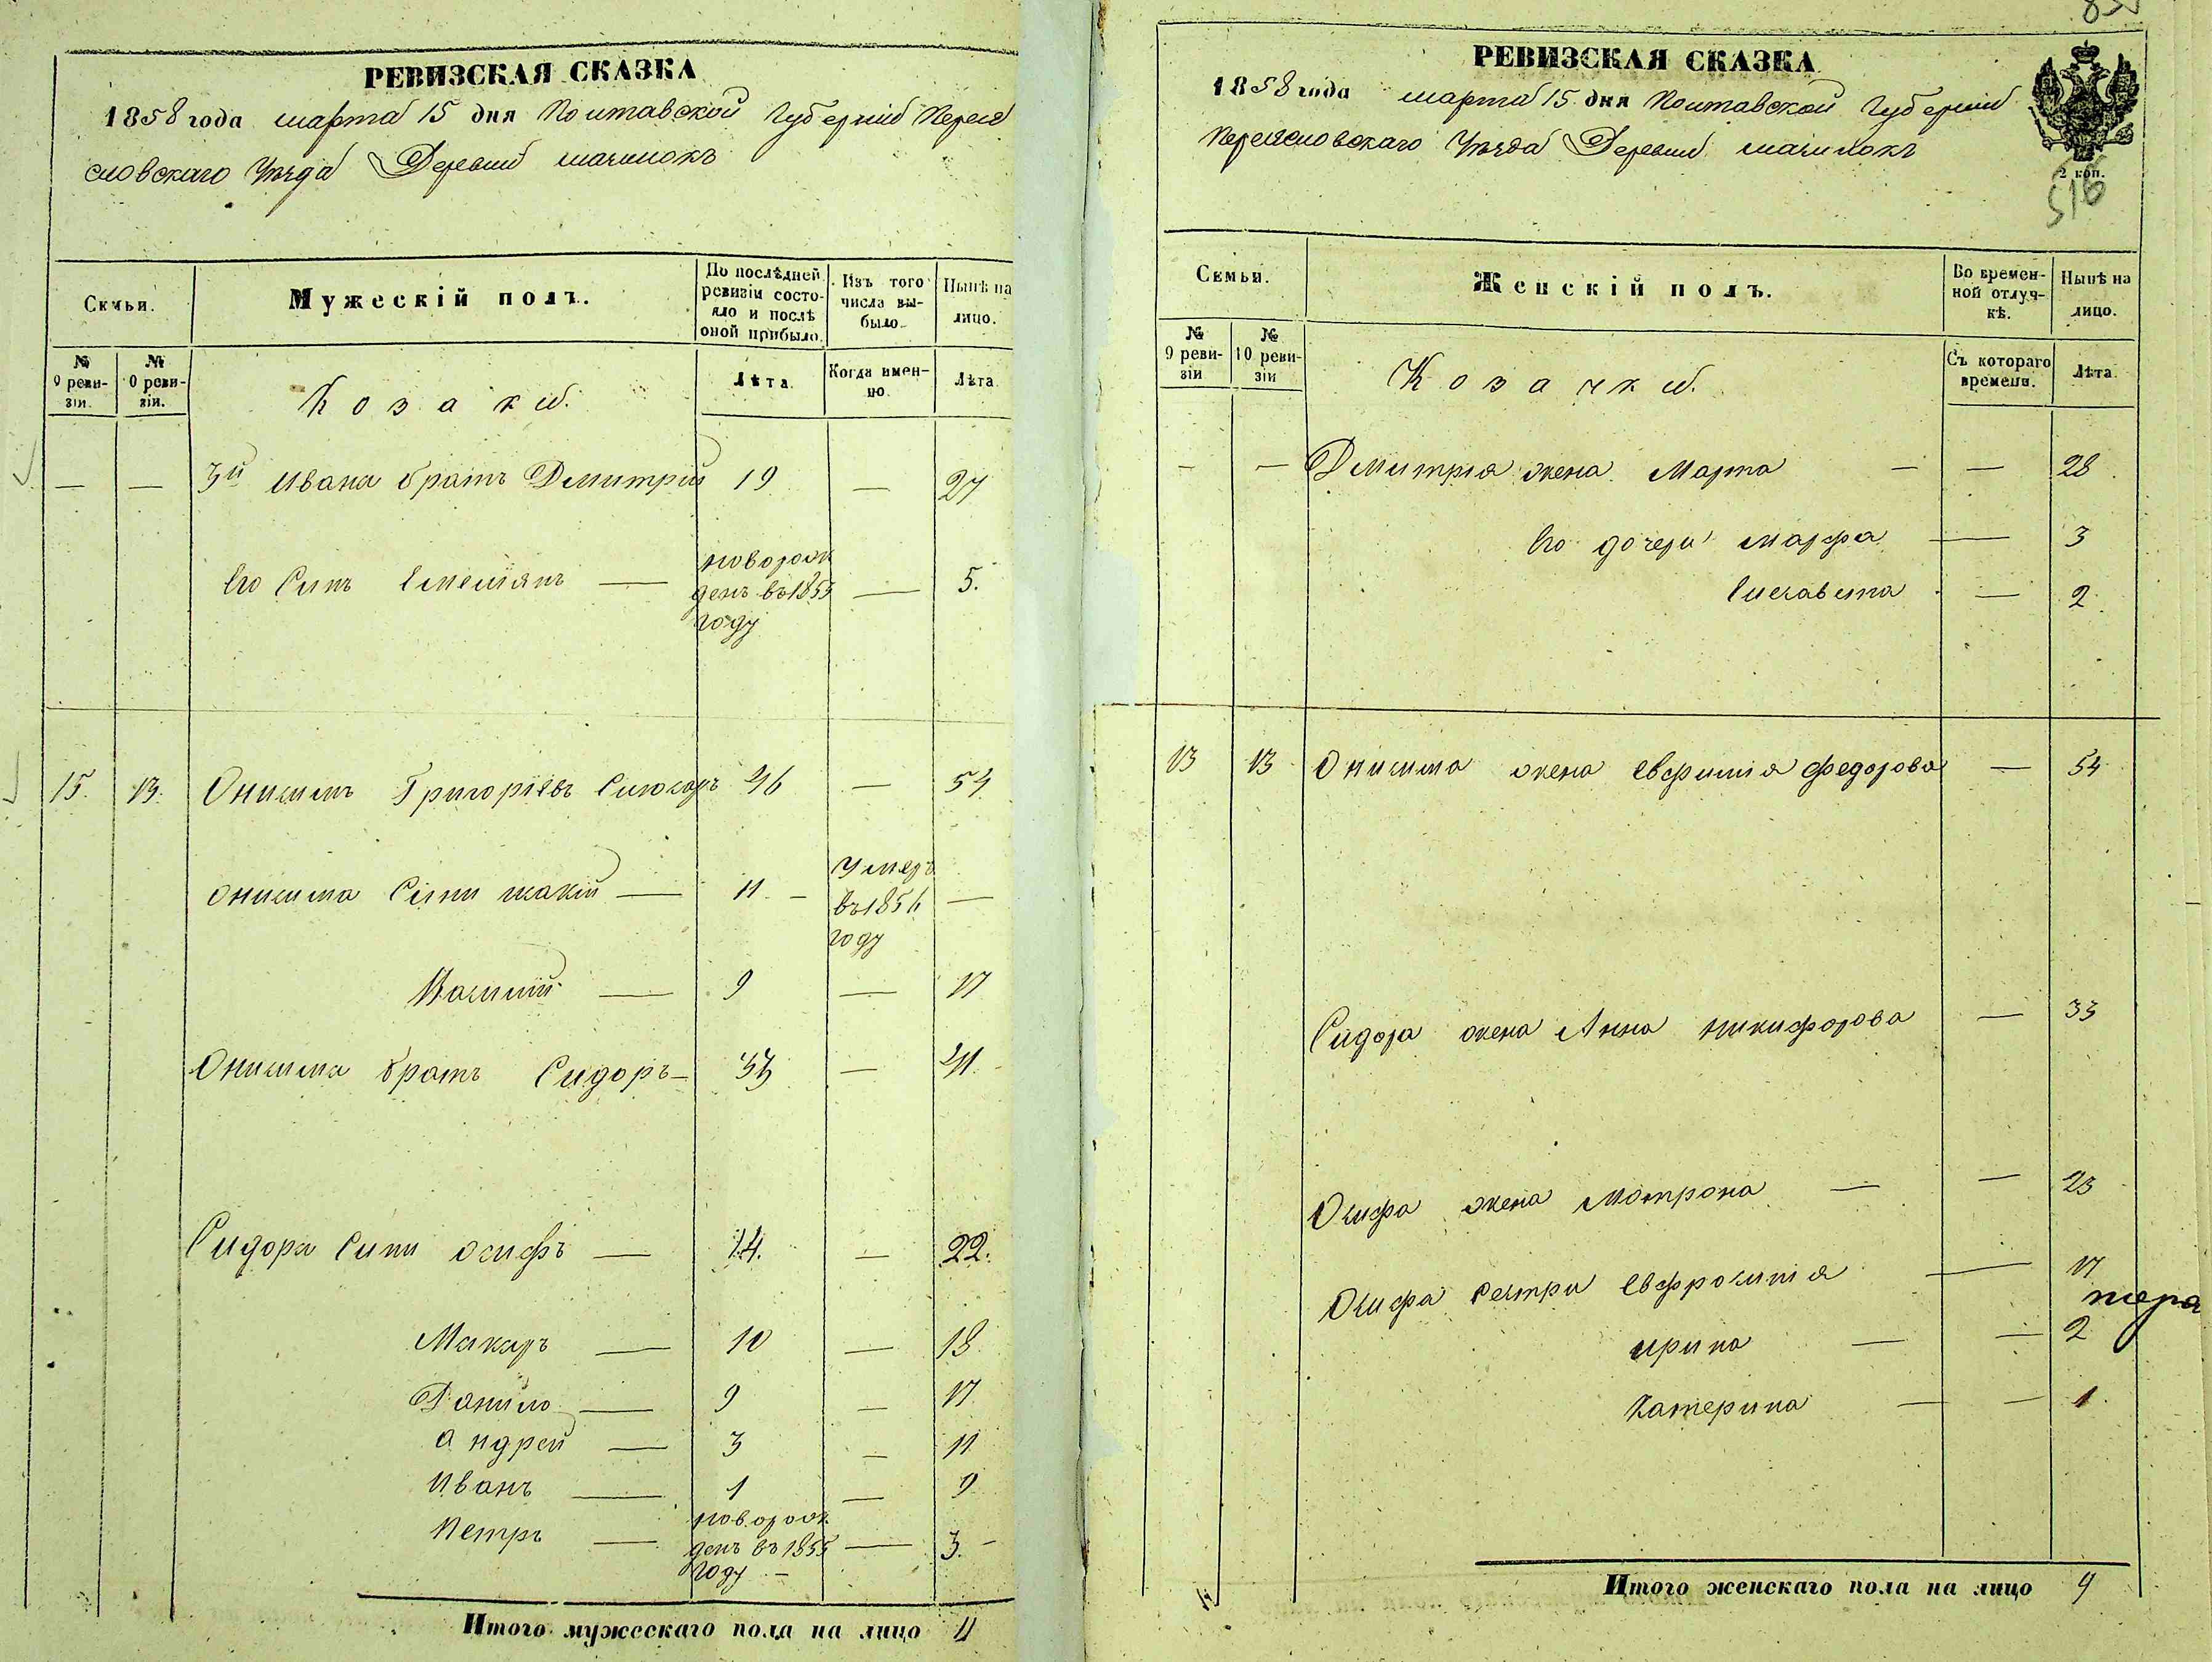 РЕВИЗСКАЯ СКАЗКА
1858 года марта 15 дня Полтавской Губернии Перея
словскаго Уѣзда Деревни
Семьи.
Мужескій полъ.
По послѣдней ревизіи состояло и послѣ оной прибыло.
Изъ того числа выбыло.
Нынѣ на лицо.
№ 9 ревизіи.
№ 10 ревизіи.
Козаки.
Лѣта.
Когда именно.
Лѣта.
— — 3й Ивана братъ Дмитрий 19 — 27
Его Синъ Емельянъ — новорож
денъ въ 1853 — 5.
году
15. 13. Онисимъ Григоріевъ Слюсарь 46 — 54
Онисима Сыни — 11 — Умеръ
въ 1854 —
году
Василий — 9 — 17
Онисима братъ Сидоръ — 33 — 41.
Сидора Сини Осифъ — 14. — 22.
Макаръ — 10 — 18
Данило — 9 — 17
Андрей — 3 — 11
Иванъ — 1 — 9
Петръ — новорож
денъ въ 1855 — 3. —
году —
Итого мужескаго пола на лицо 11
РЕВИЗСКАЯ СКАЗКА
1858 года марта 15 дня Полтавской Губернии
Переясловскаго Уѣзда Деревни
2 коп.
516
Семьи.
Женскій полъ.
Во временной отлучкѣ.
Нынѣ на лицо.
№ 9 ревизіи
№ 10 ревизіи
Козачки.
Съ котораго времени.
Лѣта.
— — Дмитрия жена Марта — — 28
Его дочери Марфа — 3
Елисавета — 2
13 13 Онисима жена Евфимія Федорова — 54
Сидора жена Анна Никифорова — 33
Осифа жена Мотрона — — 23
Осифа Сестри Евфросинія — 17
Ирина — — 2
Катерина — — 1.
Итого женскаго пола на лицо 9